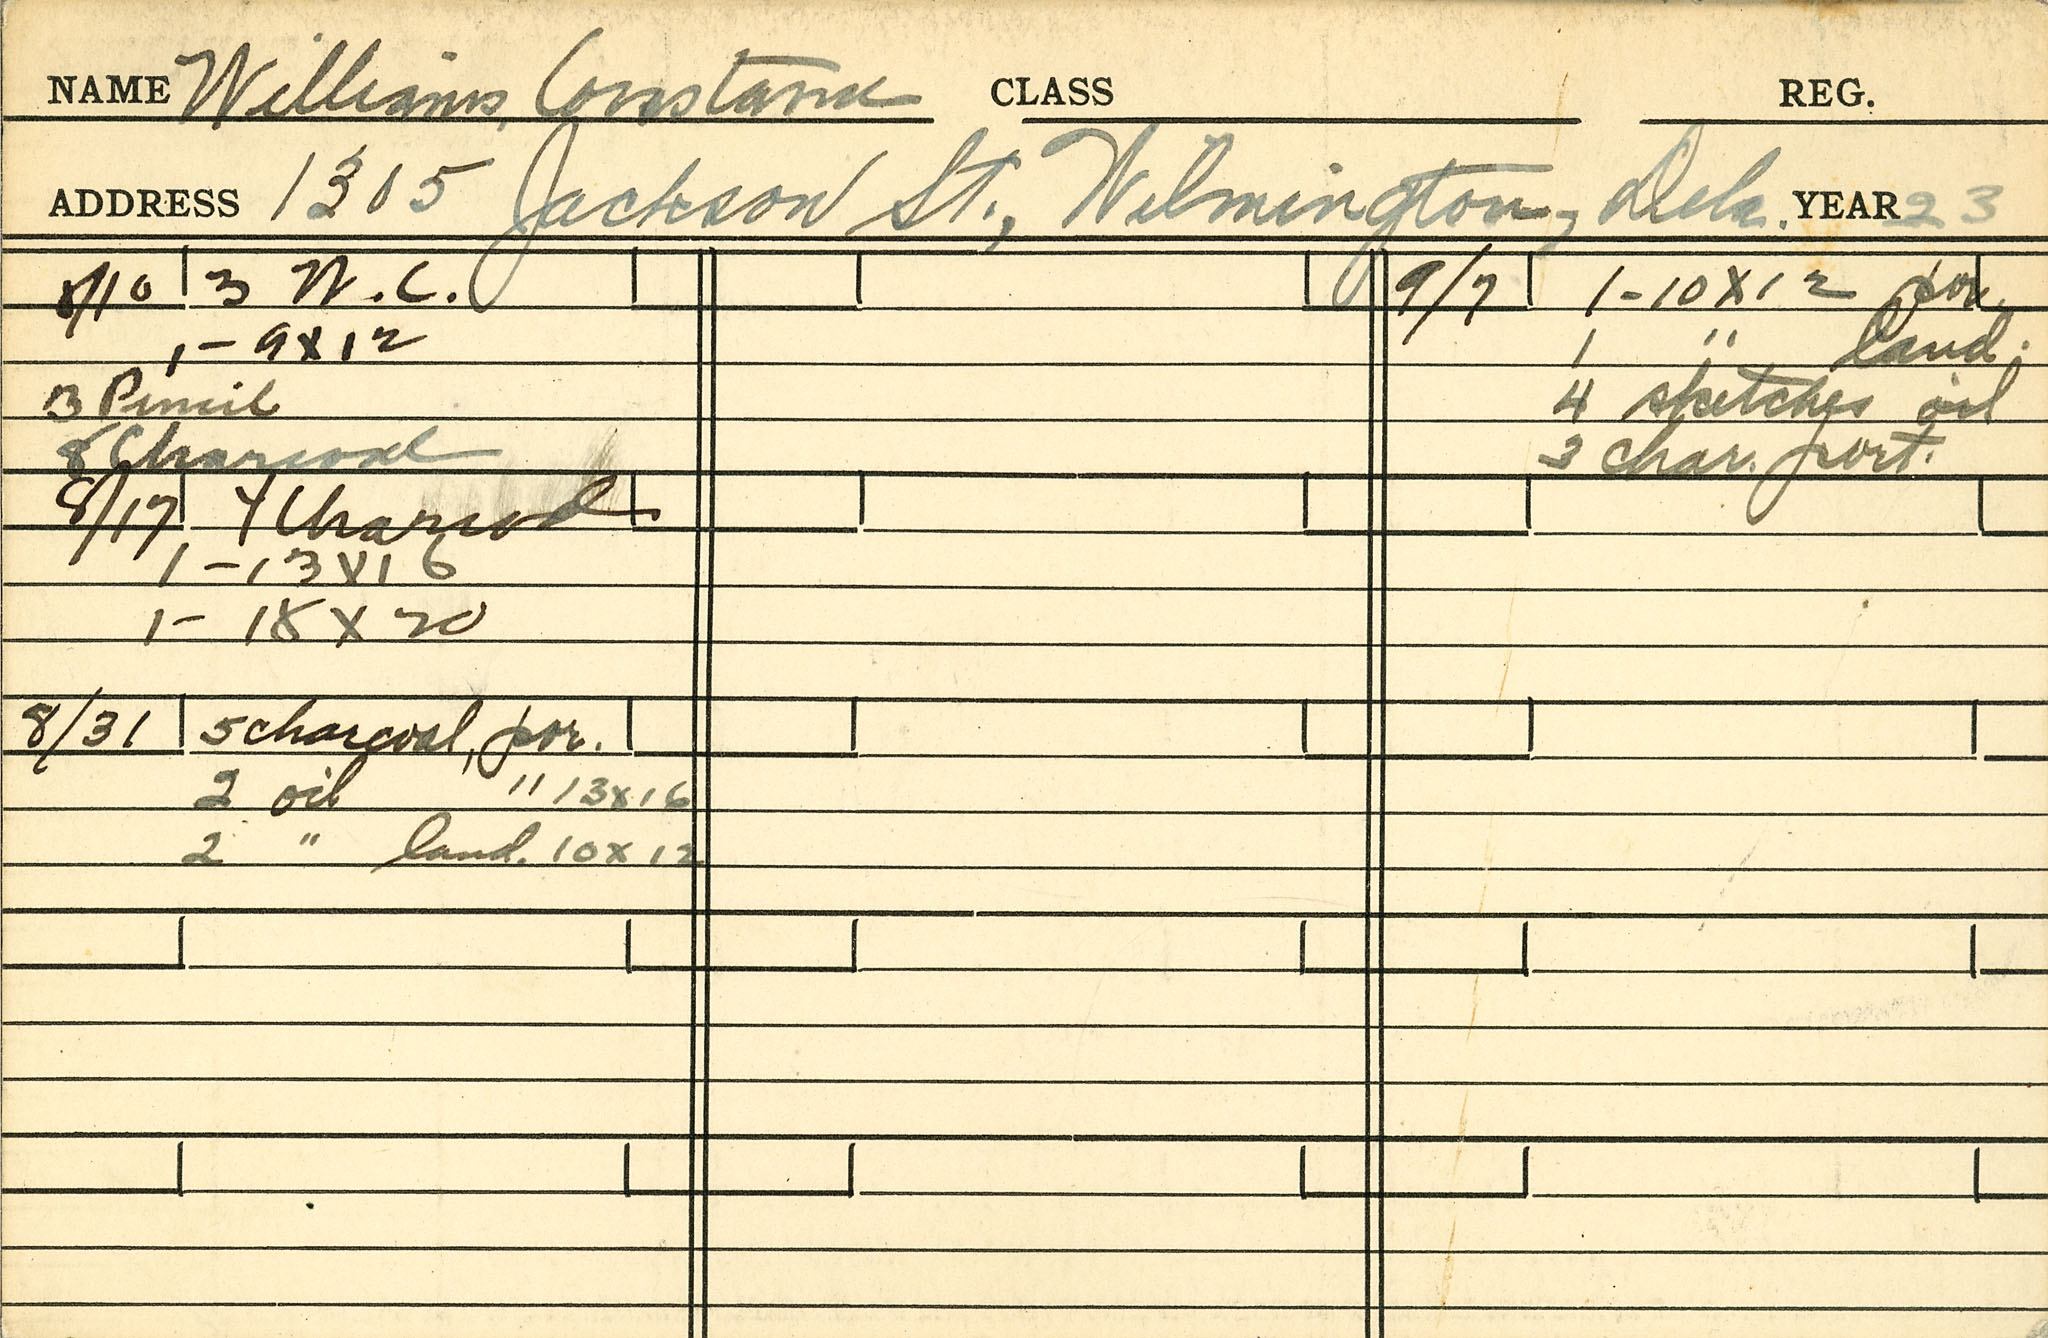 NAME Williams, Constance CLASS REG.
ADDRESS 1305 Jackson St., Wilmington, Dela. YEAR 23
8/10 3 W.C.
1 - 9X12
3 Pencil
8 Charcoal
8/17 4 Charcoal
1 - 13X16
1 - 18 X 20
8/31 5 charcoal, por.
2 oil " 13x16
2 " land. 10x12
9/7 1 - 10X12 por.
1 " land.
4 sketches oil
3 char. port.